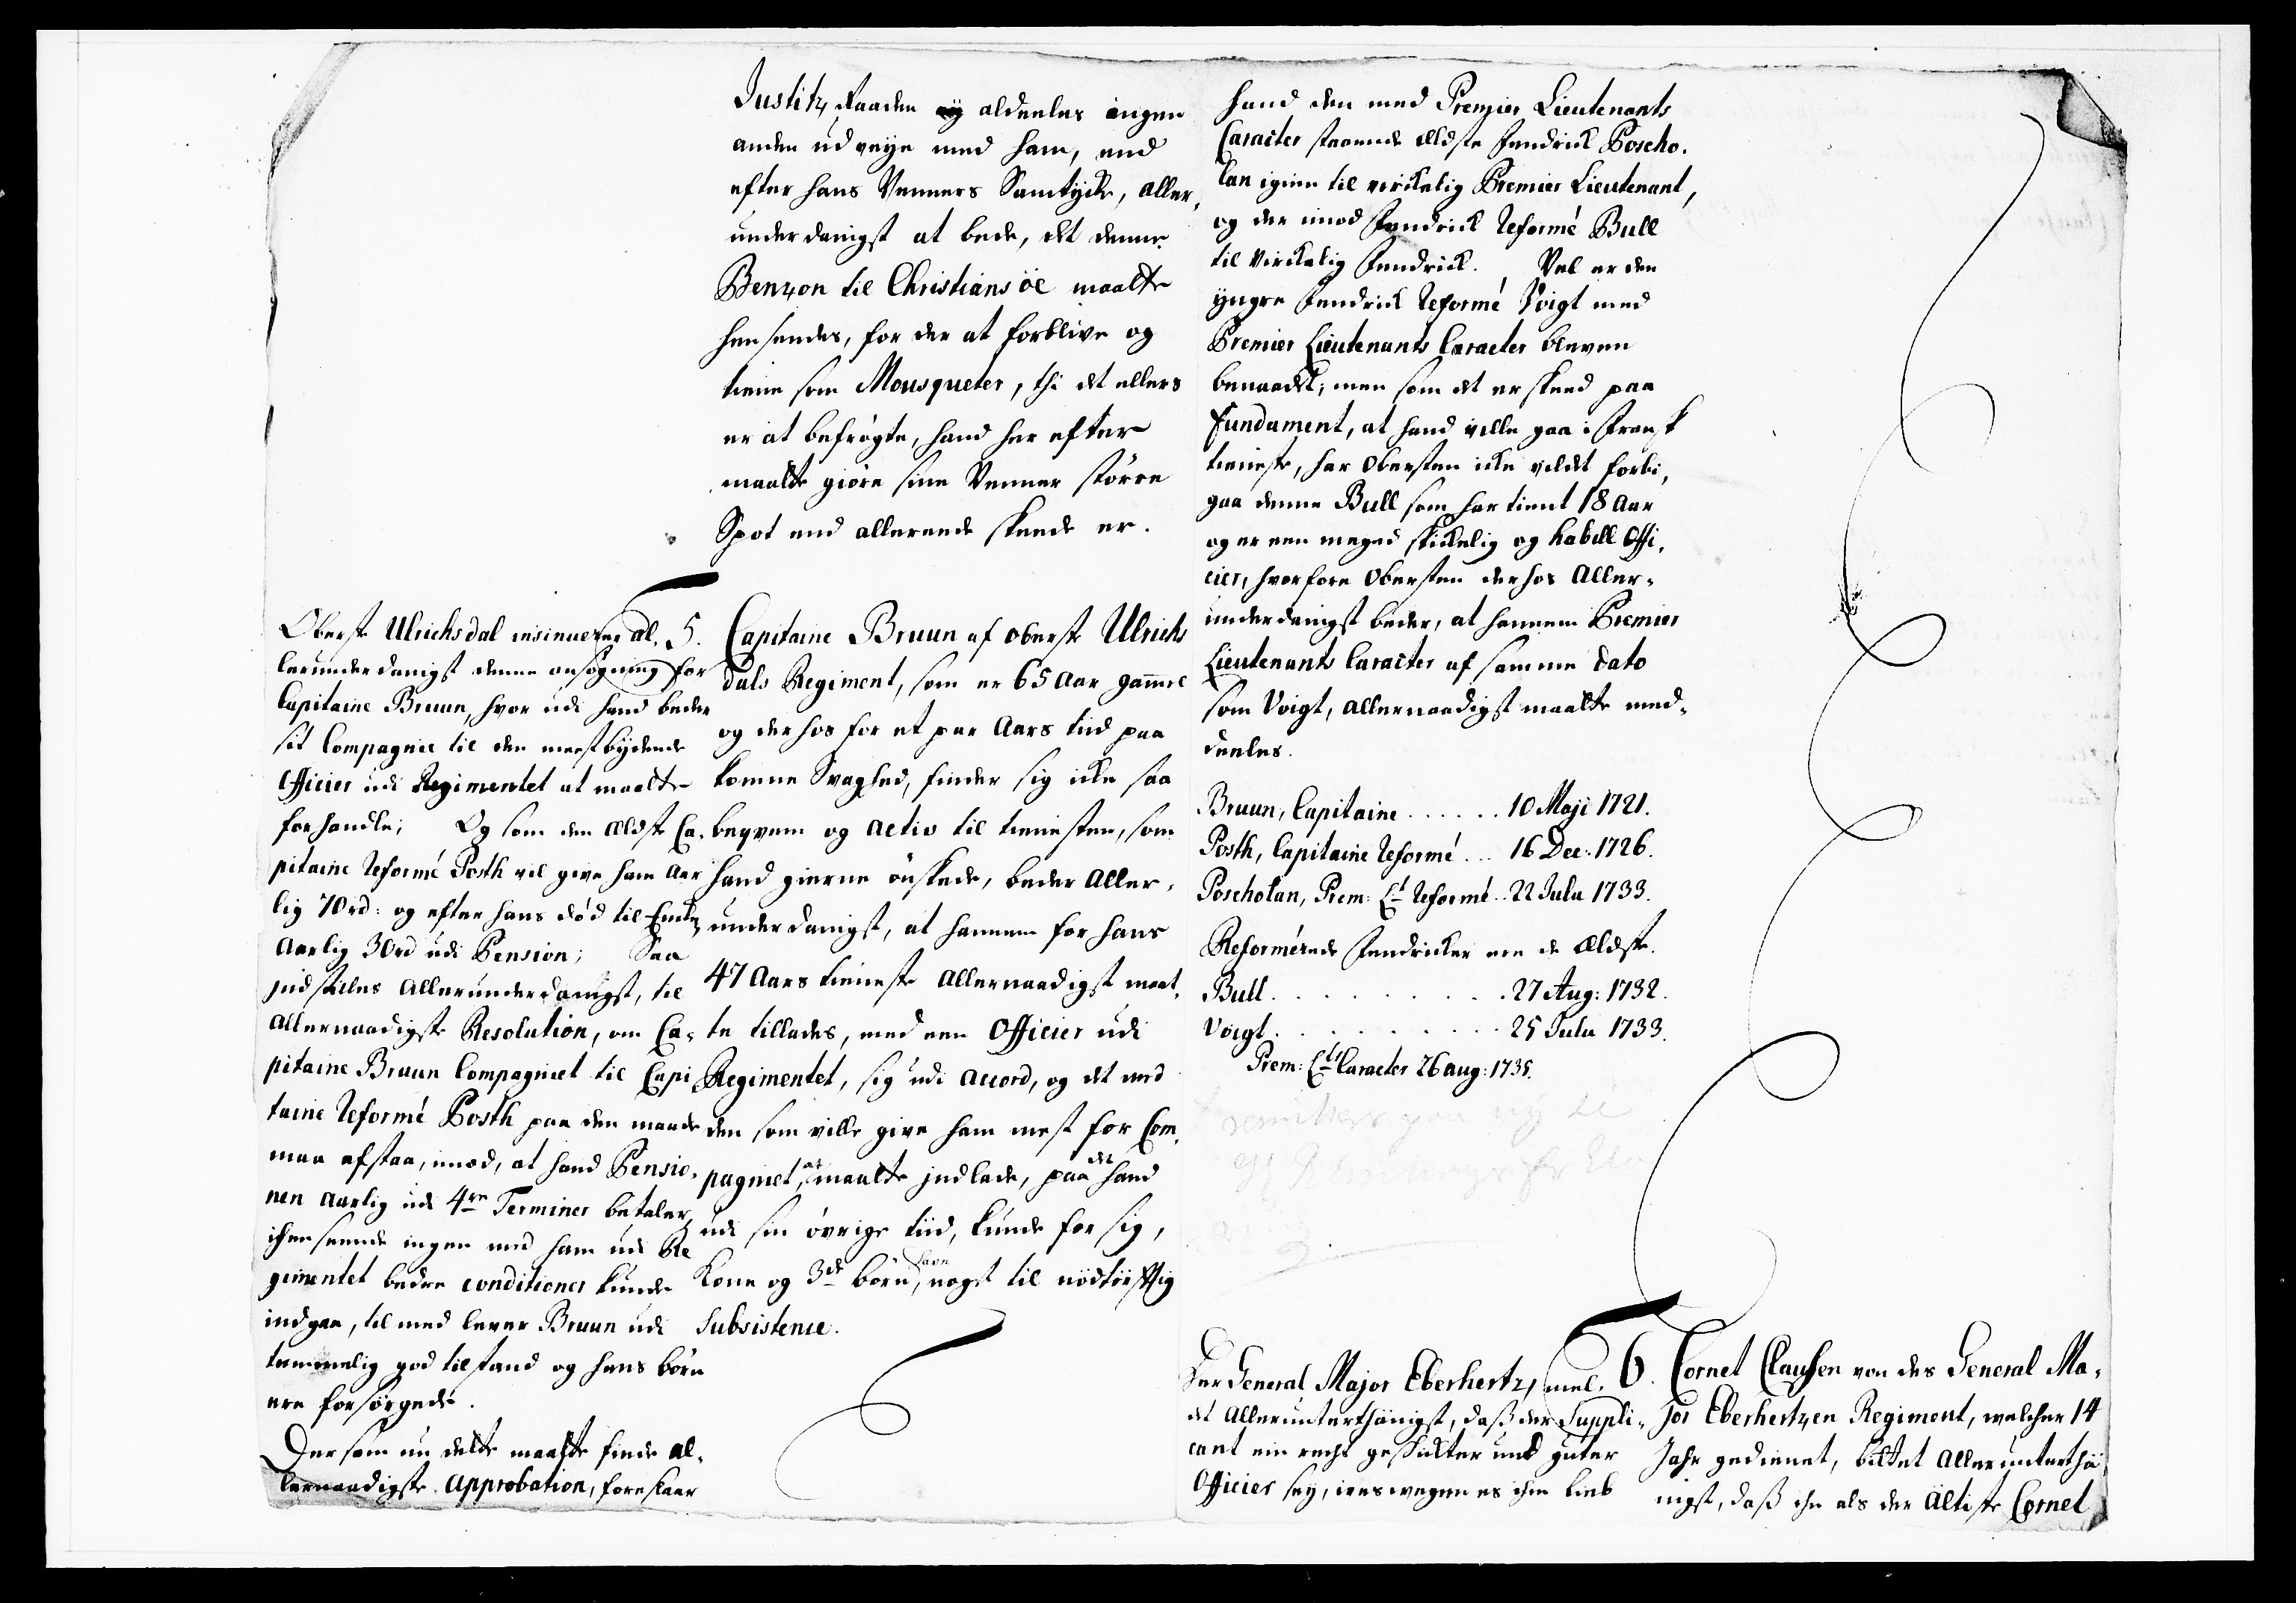 Justitz Raaden aldeeles ingen
anden udveye med ham, end
efter hans Venners Samtycke, aller,
underdanigst at bede, det denne
Benzon til Christiansöe maatte
hensendes, for der at forblive og
tiene som Mousqueter, thi det ellers
er at befrygte, hand her efter
maatte giöre sine Venner större
Spot end allereede skeede er.
Oberst Ulrichsdal insinuerer al,
lerunderdanigst denne ansögning for
Capitaine Bruun, hvor udi hand beder
sit Compagnie til den meestbydende
Officier udi Regimentet at maatte
forhandle; Og som den ældste Ca,
pitaine Reformé Posth vil give ham Aar
lig 70rd: og efter hans död til Enken
Aarlig 30rd udi Pension; Saa
indstilles Allerunderdanigst, til
Allernaadigste Resolution, om Ca,
pitaine Bruun Compagniet til Capi
taine Reformé Posth paa den maade
maa afstaa, imod, at hand Pensio,
nen Aarlig udi 4re Terminer betaler,
ihenseende ingen med ham udi Re
gimentet bedre conditioner kunde
indgaa, til med lever Bruun udi
temmelig god tilstand og hans börn
ere forsörgede.
Dersom nu dette maatte finde al,
lernaadigste Approbation, foreslaar
5. Capitaine Bruun af Oberst Ulrichs
dals Regiment, som er 65 Aar gammel
og derhos for et par Aars tiid paa
komne Svaghed, finder sig icke saa
beqvem og activ til tienesten, som
hand gierne önskede, beder Aller,
underdanigst, at hannem for hans
47 Aars tieneste Allernaadigst maat,
te tillades, med een Officier udi
Regimentet, sig udi accord, og det med
den som ville give ham mest for Com,
pagniet, at maatte indlade, paa det hand
udi sin övrige tiid, kunde for sig,
Kone og 3de börn, have noget til nödtörfftig
Subsistence.
hand den med Premier Lieutenants
Caracter staaende ældste Fendrick Poscho,
lan igien til virckelig Premier Lieutenant,
og der imod Fendrick Reformé Bull
til Virckelig Fendrick. Vel er den
yngre Fendrick Reformé Voigt med
Premier Lieutenants Caracter bleven
benaadet; men som det er skeed paa
Fundament, at hand ville gaa i Fransk
tieneste, har Obersten icke vildet forbi,
gaa denne Bull som har tient 18 Aar
og er een meged skickelig og habill Offi,
cier, hvorfore Obersten derhos Aller,
underdanigst beder, at hannem Premier
Lieutenants Caracter af samme dato
som Voigt, allernaadigst maatte med,
deeles.
Bruun, Capitaine . . . . . . 10 Maji 1721.
Posth, Capitaine Reformé . . . 16 Dec: 1726.
Poscholan, Prem: Lt Reformé . . 22 Julii 1733.
Reformérede Fendricker ere de Ældste.
Bull . . . . . . . . . 27 Aug: 1732.
Voigt . . . . . . . . . 25 Julii 1733.
Prem: Lts Caracter 26 aug: 1735.
Der General Major Eberhertz, mel,
det Allerunterthänigst, daß der Suppli,
cant ein recht geschickter und guter
Officier sey, weswegen es ihm lieb
6. Cornet Clausen von des General Ma,
jor Eberhertzen Regiment, welcher 14
Jahr gedienet, bittet Allerunterthä
nigst, daß ihn als der Älteste Cornet